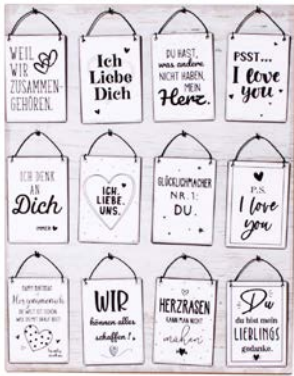 WEIL
WIR
ZUSAMMEN-
GEHÖREN.
Ich
Liebe
Dich
DU HAST,
was andere
NICHT HABEN,
MEIN
Herz.
PSST...
I love
you
ICH DENK
AN
Dich
immer
ICH.
LIEBE.
UNS.
GLÜCKLICHMACHER
NR. 1:
DU.
P.S.
I love
you
HAPPY BIRTHDAY
Herzensmensch
DIE WELT IST SCHÖN,
WEIL DU MIT DRAUF BIST!
WIR
können alles
schaffen!
HERZRASEN
KANN MAN NICHT
mähen
Du
du bist mein
LIEBLINGS
gedanke.